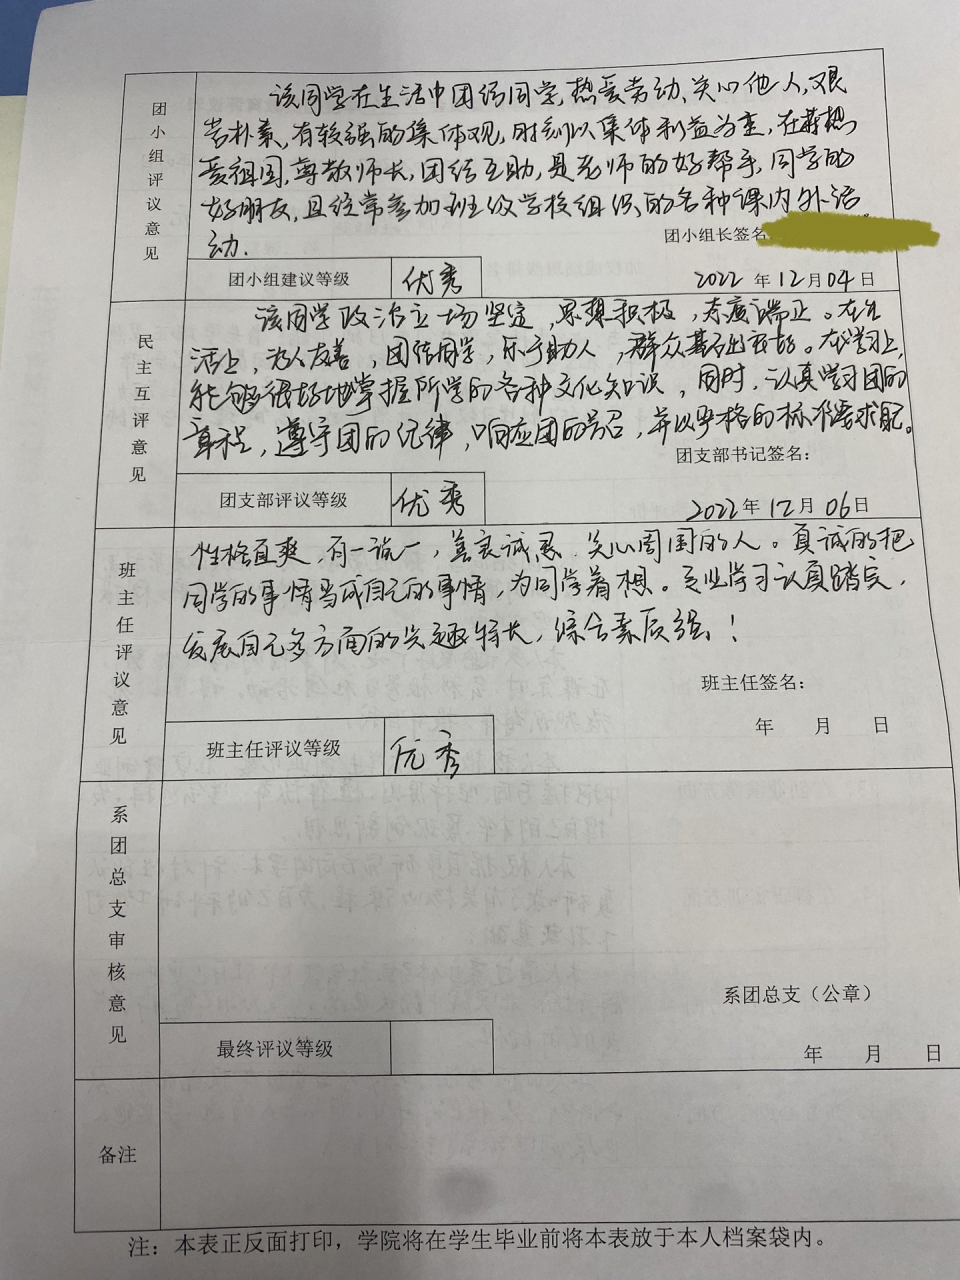 团小组评议意见
该同学在生活中团结同学,热爱劳动、关心他人,艰
苦朴素,有较强的集体观,时刻以集体利益为主,在热
爱祖国,尊敬师长,团结互助,是老师的好帮手,同学的
好朋友,且经常参加班级学校组织的各种课内外活
动.
团小组长签名
团小组建议等级 优秀 2022年12月04日
民主互评意见
该同学政治立场坚定,思想积极,态度端正。在生
活上,为人友善,团结同学,乐于助人,群众基础良好。在学习上,
能够很好地掌握所学的各种文化知识,同时,认真学习团的
章程,遵守团的纪律,响应团的号召,并以严格的标准要求自己。
团支部书记签名:
团支部评议等级 优秀 2022年12月06日
班主任评议意见
性格直爽,有一说一,善良诚恳、关心周围的人。真诚的把
同学的事情当成自己的事情,为同学着想。专业学习认真踏实,
发展自己多方面的兴趣特长,综合素质强!
班主任签名:
年 月 日
班主任评议等级 优秀
系团总支审核意见
系团总支(公章)
最终评议等级
年 月 日
备注
注:本表正反面打印,学院将在学生毕业前将本表放于本人档案袋内。